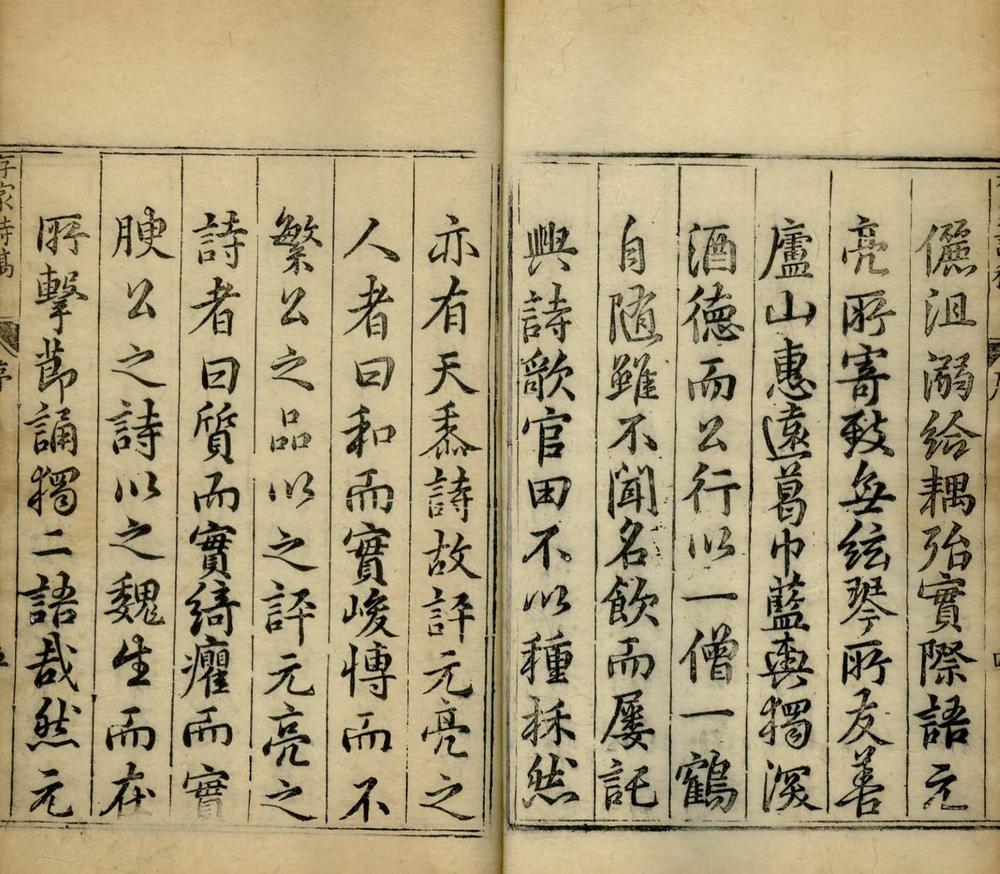 儷沮溺給耦殆實際語元
亮所寄致無絃琴所友善
廬山惠遠葛巾藍輿獨深
酒德而公行以一僧一鶴
自隨雖不聞名飲而屢託
興詩歌官田不以種秫然
亦有天黍詩故評元亮之
人者曰和而實峻慱而不
繁公之品以之評元亮之
詩者曰質而實綺癯而實
腴公之詩以之魏生而在
所擊節誦獨二語哉然元
家詩
序